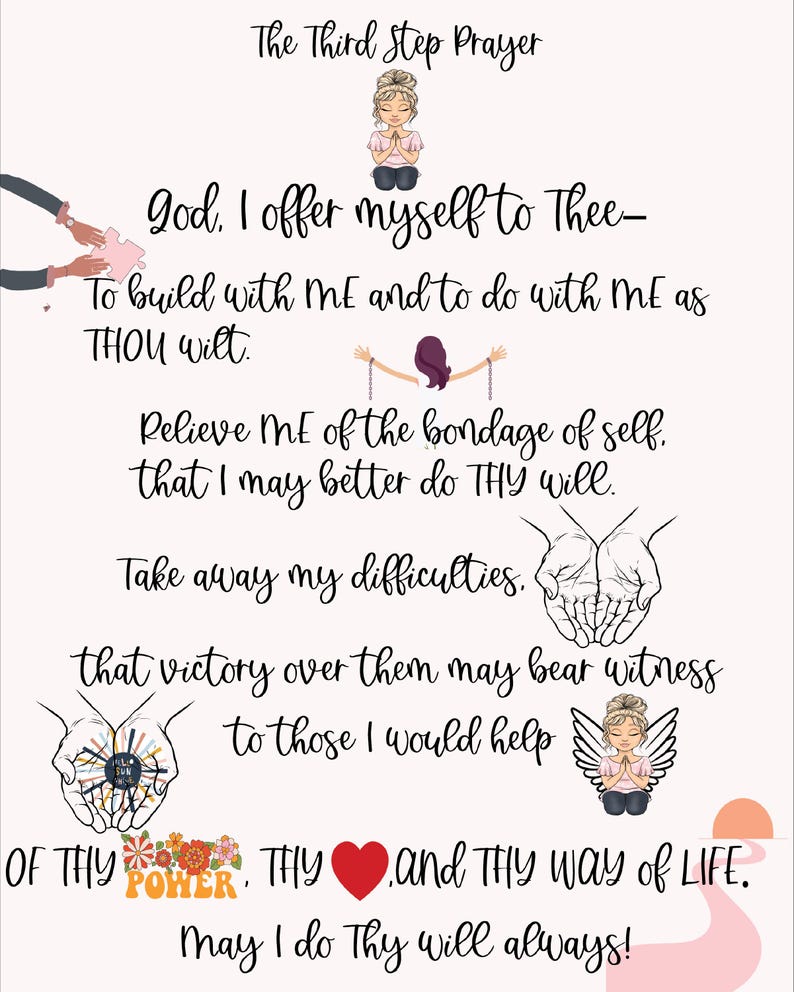 The Third Step Prayer
God, I offer myself to Thee—
To build with ME and to do with ME as
THOU wilt.
Relieve ME of the bondage of self,
that I may better do THY will.
Take away my difficulties,
that victory over them may bear witness
to those I would help
HELLO
SUN
SHINE
OF THY POWER, THY ,and THY WAY of LIFE.
May I do Thy will always!